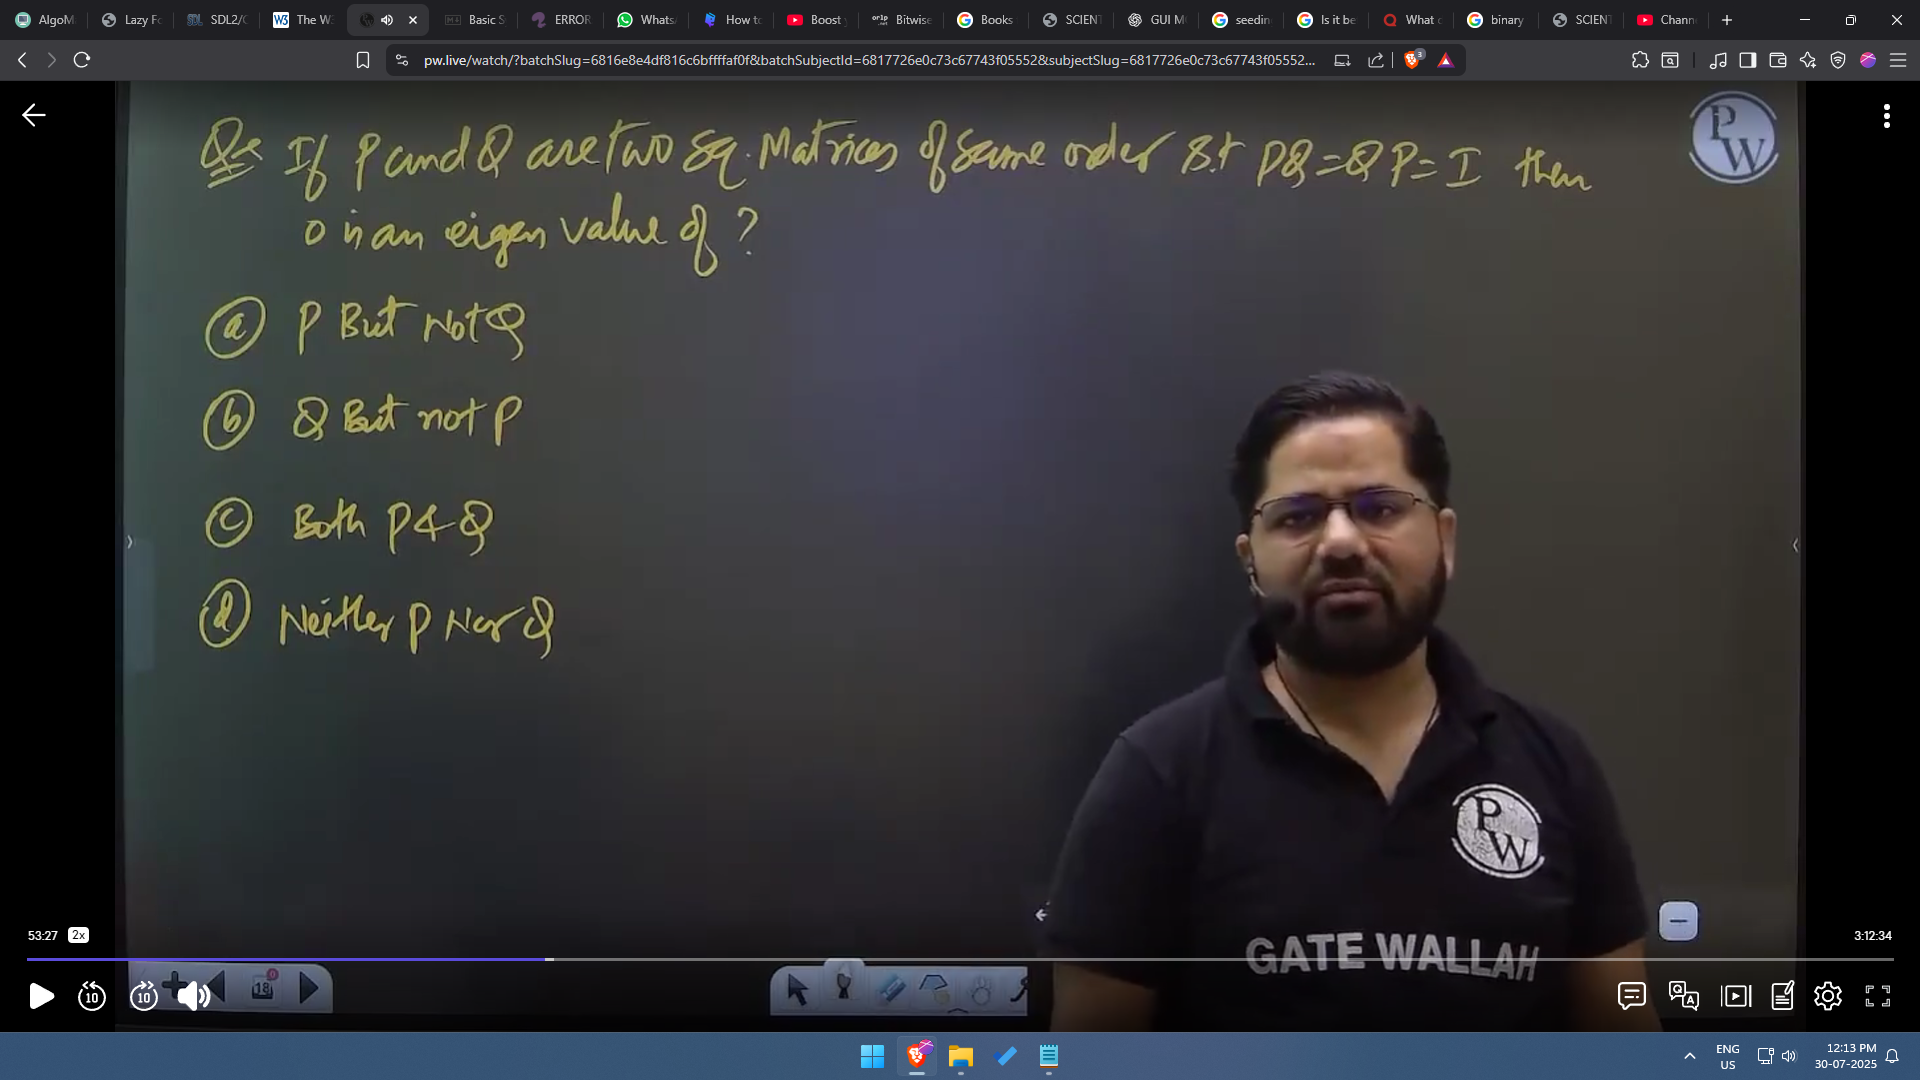 AlgoM
Lazy Fo
SDL2/C
The W3
Basic S
ERROR
Whats
How to
Boost
Bitwise
Books
SCIENT
GUI M
seedin
Is it be
What
binary
SCIENT
Chann
pw.live/watch/?batchSlug=6816e8e4df816c6bffffaf0f&batchSubjectId=6817726e0c73c67743f05552&subjectSlug=6817726e0c73c67743f05552...
3
Qs If P and Q are two sq. Matrices of same order s.t PQ=QP=I then
0 is an eigen value of ?
(a) P But Not Q
(b) Q But not P
(c) Both P & Q
(d) Neither P Nor Q
PW
PW
GATE WALLAH
53:27 2x
3:12:34
10
10
18
0
Q A
ENG
US
12:13 PM
30-07-2025